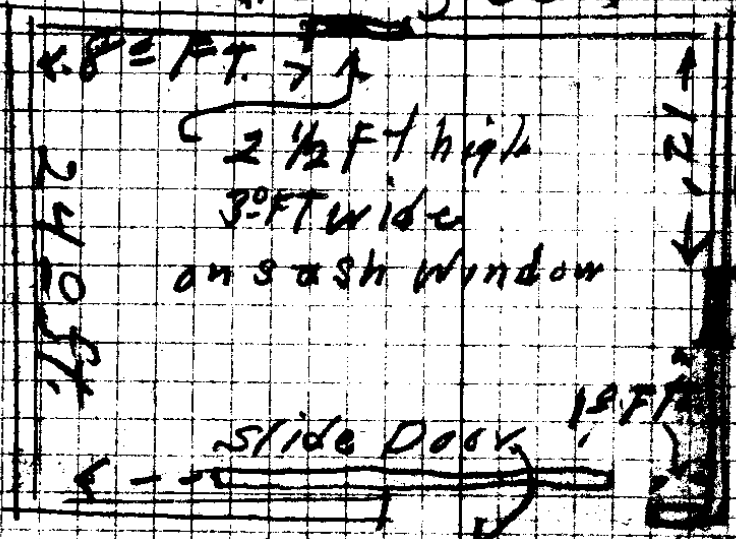 8º Ft.
12'
2 ½ Ft high
3º Ft wide
on sash window
24-0 ft.
Slide Door